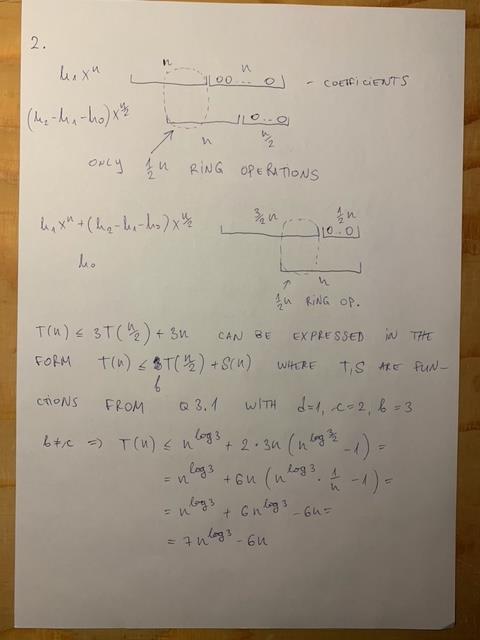 2.
n n
h₁xⁿ 00...0 - COEFFICIENTS
(h₂-h₁-h₀)x^{n/2} 0...0
n n/2
ONLY ½n RING OPERATIONS
3/2n ½n
h₁xⁿ+(h₂-h₁-h₀)x^{n/2} 0..0
h₀ n
½n RING OP.
T(n) ≤ 3T(n/2)+3n CAN BE EXPRESSED IN THE
FORM T(n) ≤ bT(n/2)+S(n) WHERE T,S ARE FUN-
CTIONS FROM Q3.1 WITH d=1, c=2, b=3
b≠c => T(n) ≤ n^{log3} + 2·3n(n^{log 3/2} -1) =
= n^{log3} + 6n(n^{log3}·1/n -1) =
= n^{log3} + 6n^{log3} - 6n =
= 7n^{log3} - 6n